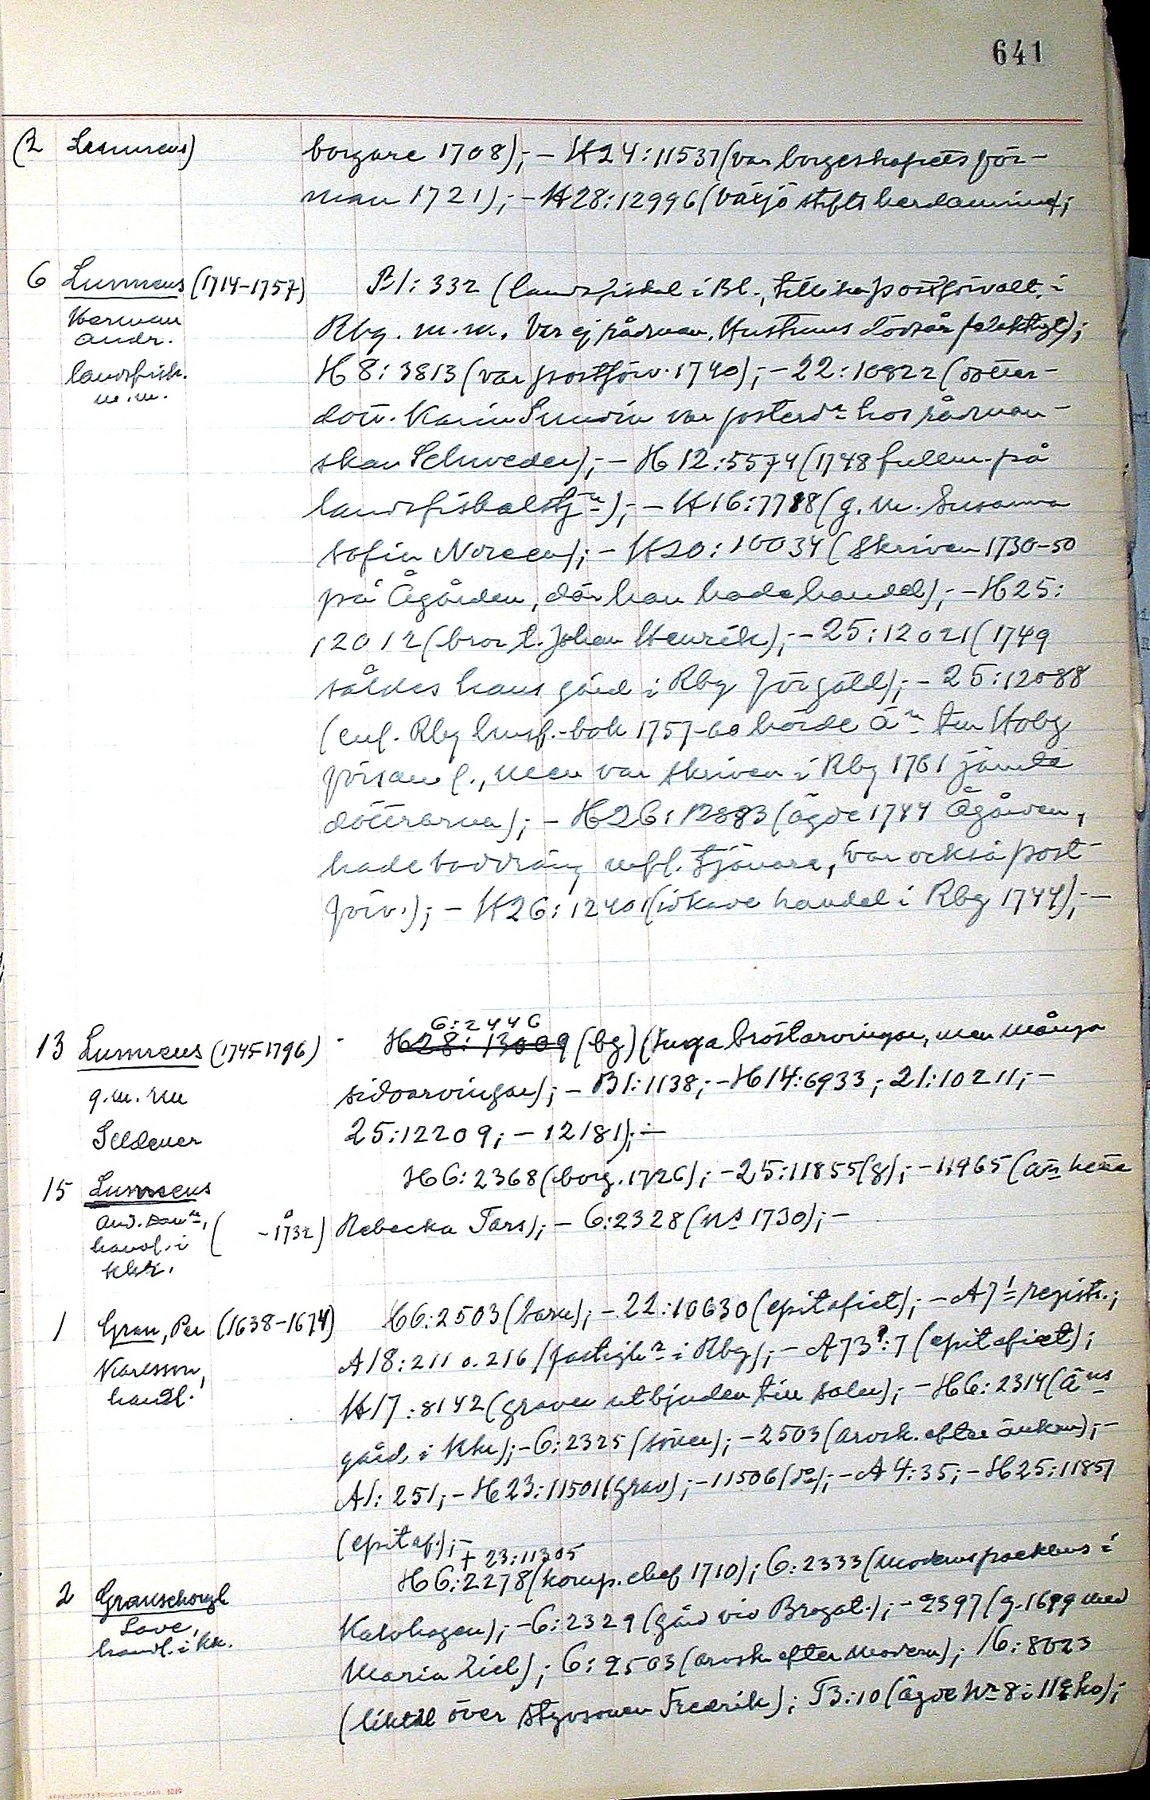 641
(2 Lunnæus) borgare 1708); – H24:11537 (var borgerskapets för-
man 1721); – H28:12996 (Växjö stifts herdaminne);
6 Lunnæus (1714–1757) P1:332 (landsfiskal i Bl., tillika postförvalt. i
Herman Rbg. m.m. Var ej rådman. Hustruns dödsår felaktigt);
Andr.
landsfisk. H8:3813 (var postförv. 1740); – 22:10822 (dotter-
m.m.
dott. Karin Sundin var fosterd:r hos rådman-
skan Schweder); – H12:5574 (1748 fullm. på
landsfiskalstj:n); – H16:7788 (g. m. Susanna
Sofia Noreen); – H20:10034 (skriven 1730–50
på Ågården, där han hade handel); – H25:
12012 (bror t. Johan Henrik); – 25:12021 (1749
såldes hans gård i Rbg för gäld); – 25:12088
(enl. Rbg husf.-bok 1757–60 hörde Ä:n till Hobg
församl., men var skriven i Rbg 1761 jämte
döttrarna); – H26:12883 (ägde 1744 Ågården,
hade boddräng m.fl. tjänare, var också post-
förv.); – H26:12401 (idkade handel i Rbg 1744); –
6:2446
13 Lunnæus (1745–1796) H28:13009 (bg) (Inga bröstarvingar, men många
g.m. sidoarvingar); – B1:1138; – H14:6933; 21:10211; –
Seldener 25:12209; – 12181); –
15 Lunnæus H6:2368 (borg. 1726); – 25:11855 (g); – 11965 (än hette
And. Dan:n, ( –1732) Rebecka Tars); – 6:2328 (1730); –
handl. i
Khr.
1 Gran, Per (1638–1674) H6:2503 (barn); – 22:10630 (epitafiet); – A71 registr.;
Karlsson, A18:211 o. 216 (fastigh:r i Rbg); – A73:7 (epitafiet);
handl. H17:8142 (graven utbjuden till salu); – H6:2314 (Ä:ns
gård i Khr); – 6:2325 (söner); – 2503 (arvsk. efter änkan); –
A1:251; – H23:11501 (grav); – 11506 (d:o); – A4:35; – H25:11851
(epitaf.); –
+ 23:11305
2 Granschough H6:2278 (komp.chef 1710); 6:2333 (Moderns packhus i
Love, Karlshagen); – 6:2329 (gård vid Brogat.); – 2397 (g. 1699 med
handl. i Kk. Maria Ziel); 6:2503 (arvsk. efter modern); 16:8023
(liktal över styvsonen Fredrik); T3:10 (ägde N:r 8 i 11:e ko);